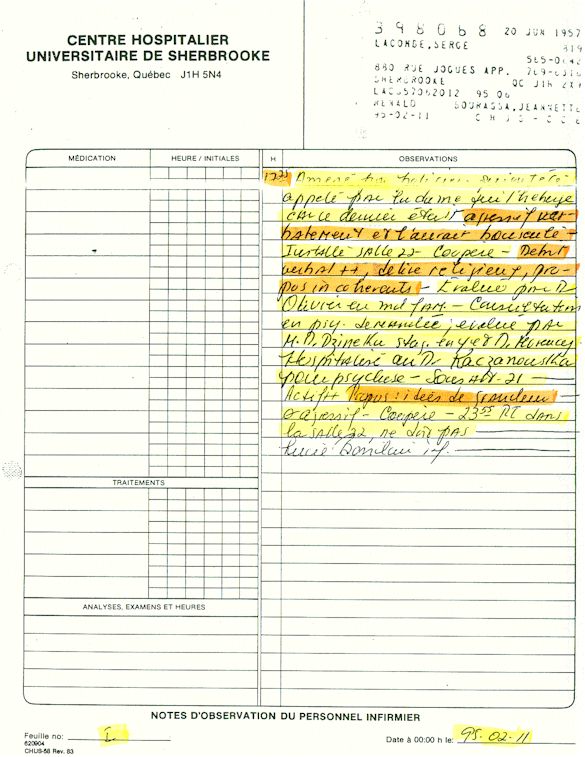 398068 20 JUN 1957
LACOMBE, SERGE 819
565-0642
880 RUE JOGUES APP.
SHERBROOKE QC J1H 2X9
LACS57062012 95 06
RENALD BOURASSA, JEANNETTE
95-02-11 C H U S - C C E
CENTRE HOSPITALIER
UNIVERSITAIRE DE SHERBROOKE
Sherbrooke, Québec J1H 5N4
MÉDICATION HEURE / INITIALES H OBSERVATIONS
Amené par policiers
appelé par la dame qui l'héberge
car ce dernier était agressif ver-
balement et l'aurait bousculé -
Installé salle 22 - Coopère - Débit
verbal ++, délire religieux, pro-
pos incohérents - Évalué par D.
Olivier en md fam. - Consultation
en psy. demandée, évalué par
M. D. stag. en psy et D.
Hospitalisé au Dr Kaczanowska
pour psychose - Sous
Actif ++ Propos : idées de grandeur
agressif - Coopère - 23 55 dans
la salle 22, ne dort pas
Lucie inf.
TRAITEMENTS
ANALYSES, EXAMENS ET HEURES
NOTES D'OBSERVATION DU PERSONNEL INFIRMIER
Feuille no: 1 Date à 00:00 h le: 95-02-11
620904
CHUS-58 Rev. 83